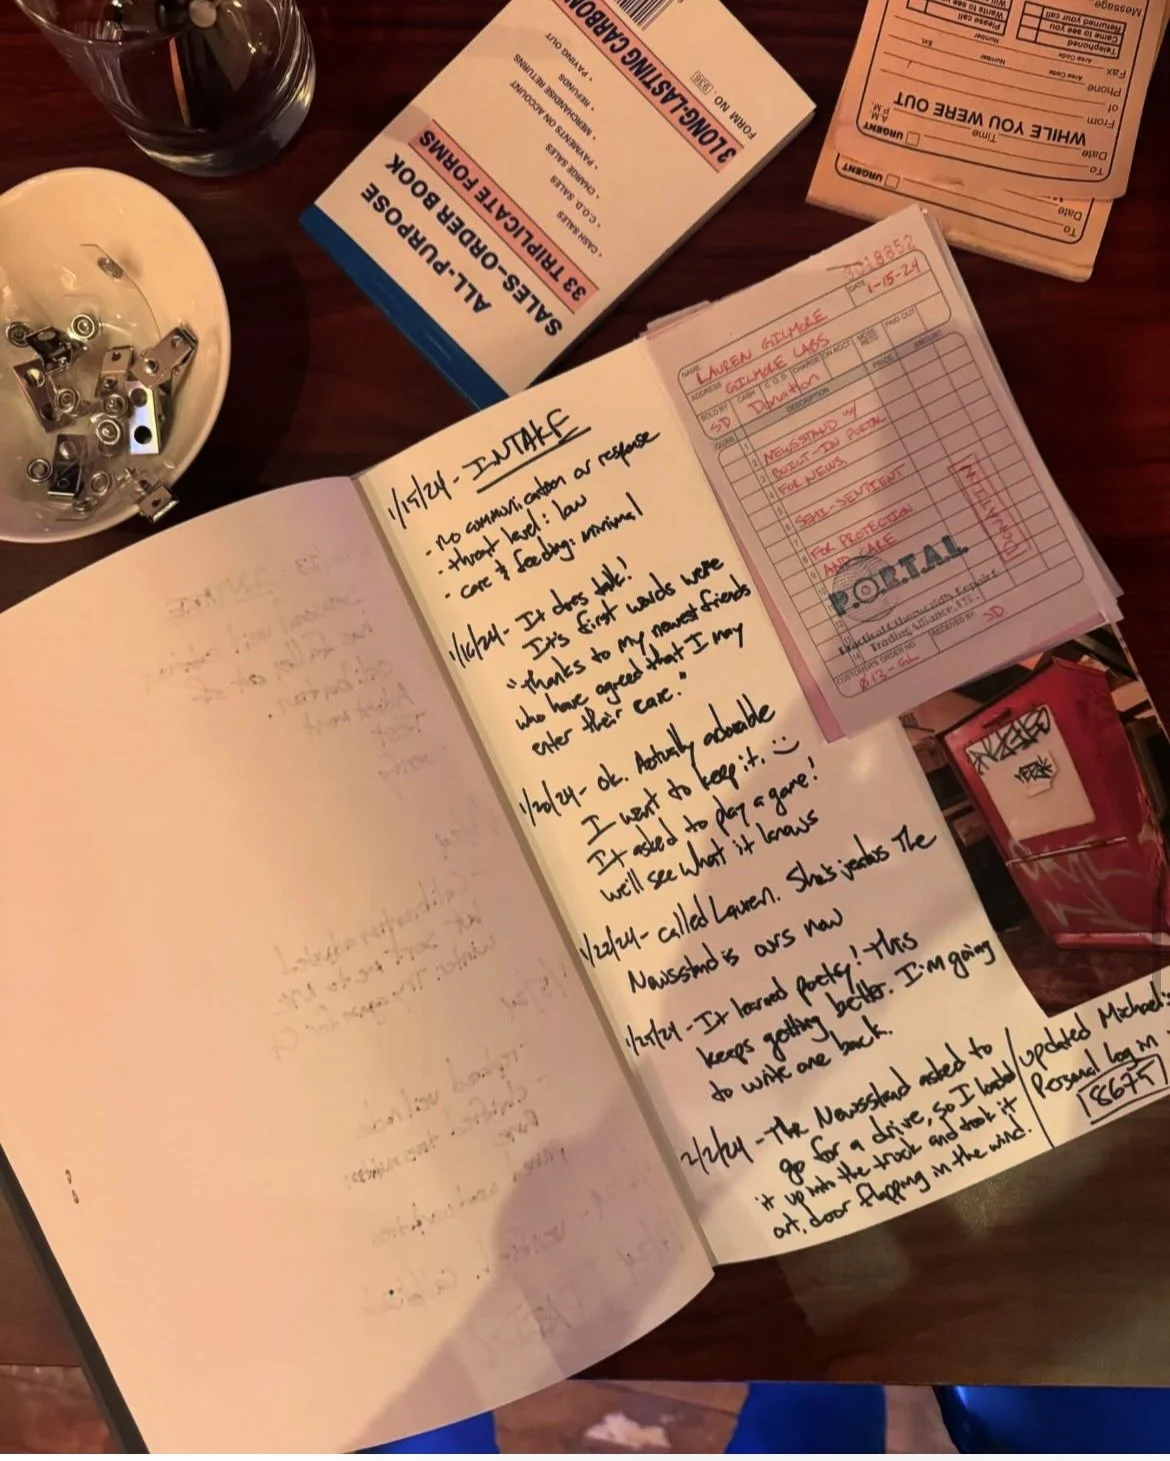 3 LONG-LASTING CARBON
FORM NO. 936
• PAYING OUT
• REFUNDS
• MERCHANDISE RETURNS
• PAYMENTS ON ACCOUNT
• CHARGE SALES
• C.O.D. SALES
• CASH SALES
33 TRIPLICATE FORMS
SALES-ORDER BOOK
ALL-PURPOSE
To
Date
WHILE YOU WERE OUT
URGENT
Time
A.M.
P.M.
From
of
Phone
Area Code
Number
Ext.
Fax
Area Code
Number
Telephoned
Came to see you
Returned your call
Please call
Wants to see you
Message
To
Date
URGENT
DATE 1-15-24
NAME LAUREN GILMORE
ADDRESS GILMORE LABS
SOLD BY CASH C.O.D. CHARGE ON ACCT. MDSE. RETD. PAID OUT
SD Donation
QUAN. DESCRIPTION PRICE AMOUNT
1 NEWSSTAND W/
2 BUILT-IN PORTAL
3 FOR NEWS
SEMI-SENTIENT
FOR PROTECTION
AND CARE
DONATION
P.O.R.T.A.L.
Trading Alliance, Etc.
CUSTOMER'S ORDER NO. RECEIVED BY
013-GL SD
1/15/24 - INTAKE
- no communication or response
- threat level: low
- care & feeding: minimal
1/16/24 - It does talk!
It's first words were
"Thanks to my newest friends
who have agreed that I may
enter their care."
1/20/24 - OK. Actually adorable
I want to keep it. :)
It asked to play a game!
we'll see what it knows
1/22/24 - called Lauren. She's jealous The
Newsstand is ours now
1/25/24 - It learned poetry! This
keeps getting better. I'm going
to write one back.
2/2/24 - The Newsstand asked to
go for a drive, so I loaded
it up into the truck and took it
out, door flapping in the wind.
updated Michael's
Personal log in
8675